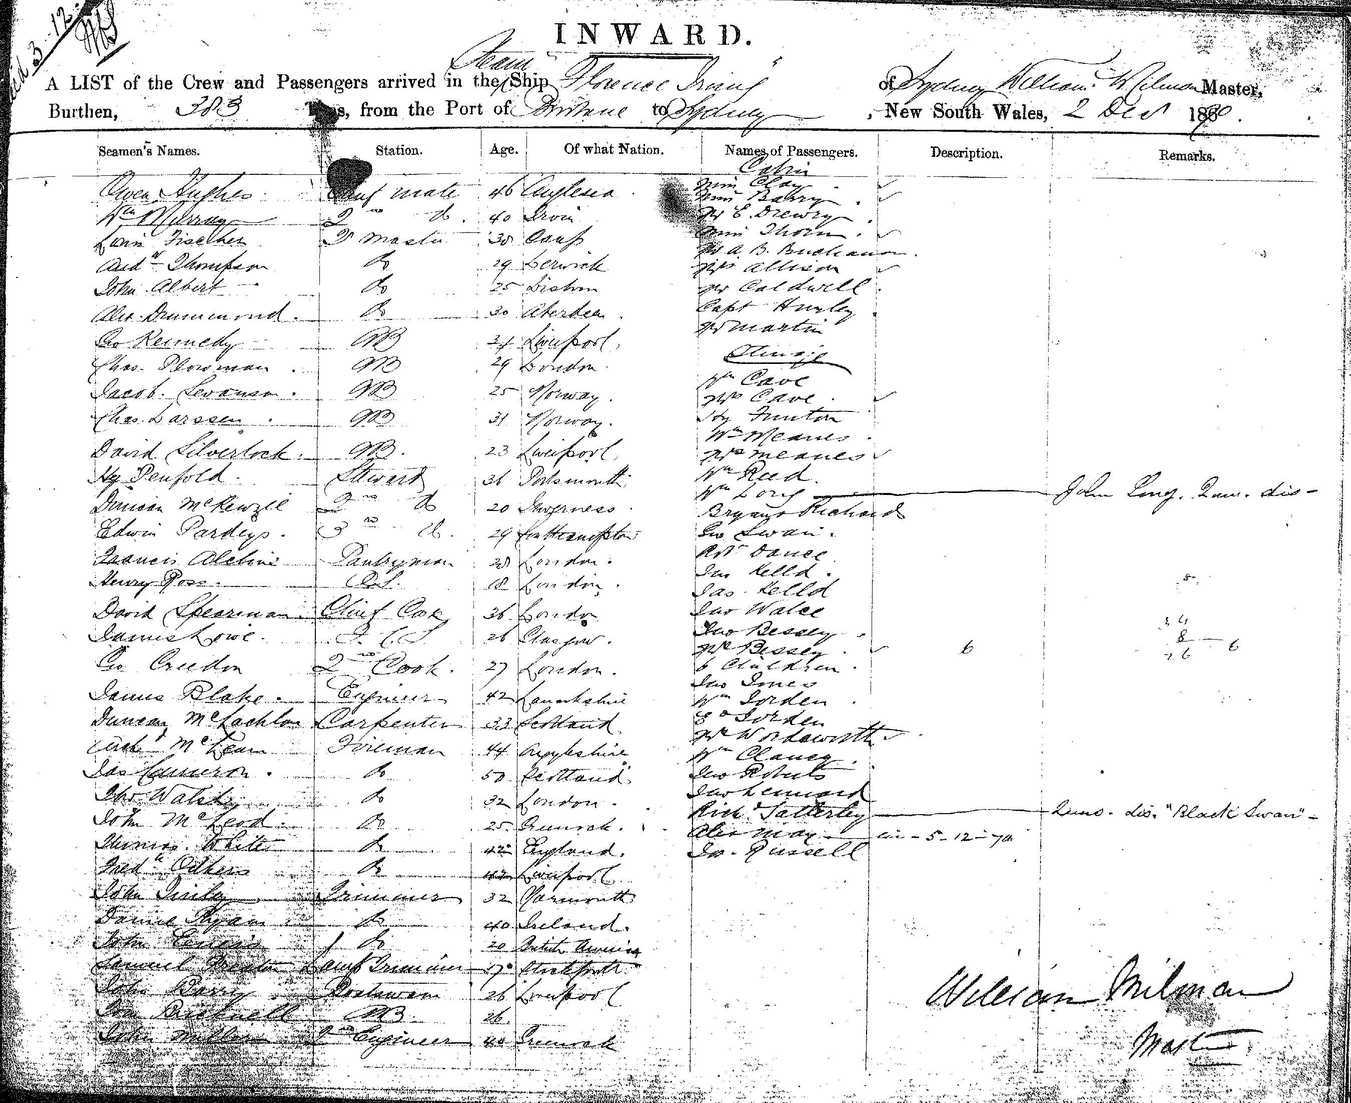 INWARD.
A LIST of the Crew and Passengers arrived in the Ship Steam "Florence Irving" of Sydney William Milman Master,
Burthen, 383 Tons, from the Port of Brisbane to Sydney, New South Wales, 2 Decr 1870.
Seamen's Names. Station. Age. Of what Nation. Names of Passengers. Description. Remarks.
Cabin
Owen Hughes Chief mate 46 Anglesea Miss Clay
Wm Murray 2nd do 40 Miss Barry
Mr E Drewry
Fischer 38 Miss Thorn
Mrs A. B. Buchanan
Thompson do 29 Lerwick Mrs Allison
John Albert do 25 Lisbon Mr Caldwell
Alex Drummond do 30 Aberdeen Capt Hurley
Mr Martin
Geo Kennedy AB 24 Liverpool
Steerage
Chas. Plowman AB 29 London Wm Cave
Jacob Swanson AB 25 Norway Mrs Cave
Chas. Larssen AB 31 Norway
Wm Meanes
David Silverlock AB 23 Liverpool Mrs Meanes
Hy Penfold Steward 36 Portsmouth Wm Reed
Wm Long John Long. Quu. dis
Duncan McKenzie 2nd do 20 Inverness Bryant Richards
Edwin Pardeys 3rd do 29 Southampton Geo Swan
Francis London Robt Dance
Pantryman Jno Kelld
Henry Ross 18 London Jas Kelld
David Spearman Chief Cook 36 London Jno Walce
James Lowe 26 Glasgow Jno Bessey
Mrs Bessey 6
Geo Creedon 2nd Cook 27 London 6 Children
Jas Jones
James Blake Engineer 42 Lanarkshire Wm Jorden
Duncan McLachlan Carpenter 33 Scotland Geo Jorden
McLean Fireman 44 Argyleshire Mr Wordsworth
Wm Clancy
Jas Cameron do 50 Scotland Jno Roberts
Jno Walsh do 32 London Jno Lennard
John McLeod do 25 Greenock Richd Tatterley dis. "Black Swan"
Thomas White do 42 England Alex May 5-12-70
Jas. Russell
Fredk Others do 42 Liverpool
John Trimmer 32 Yarmouth
Daniel Ryan do 40 Ireland
John do 20 British America
Samuel Preston Lamp Trimmer 17 Stockport
John Barry Boatswain 26 Liverpool
Tom Bucknell AB 26
John Millar 2nd Engineer 40 Greenock
William Milman
Master